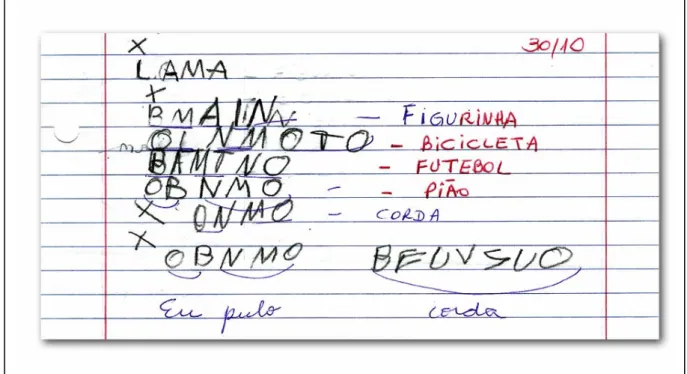 X 30/10
LAMA
X
BMAIN - FIGURINHA
OLNMOTO - BICICLETA
BAMTNO - FUTEBOL
OBNMO - - PIÃO
X ONMO - CORDA
X OBNMO BEUVSUO
Eu pulo corda